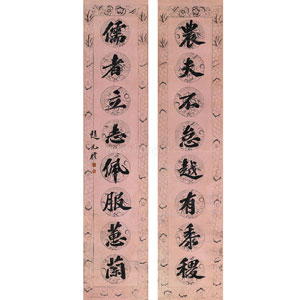 農夫不怠越有黍稷
儒者立志佩服蕙蘭
趙光